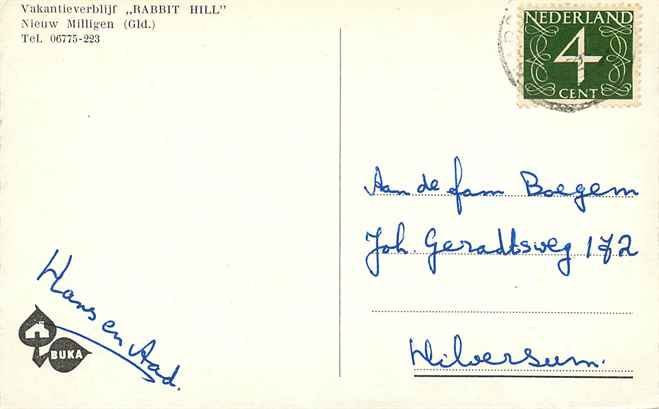 Vakantieverblijf „RABBIT HILL"
Nieuw Milligen (Gld.)
Tel. 06775-223
NEDERLAND
4
CENT
Aan de fam Boegem
Joh. Geradtsweg 172
Hilversum.
Hans en Aad.
BUKA